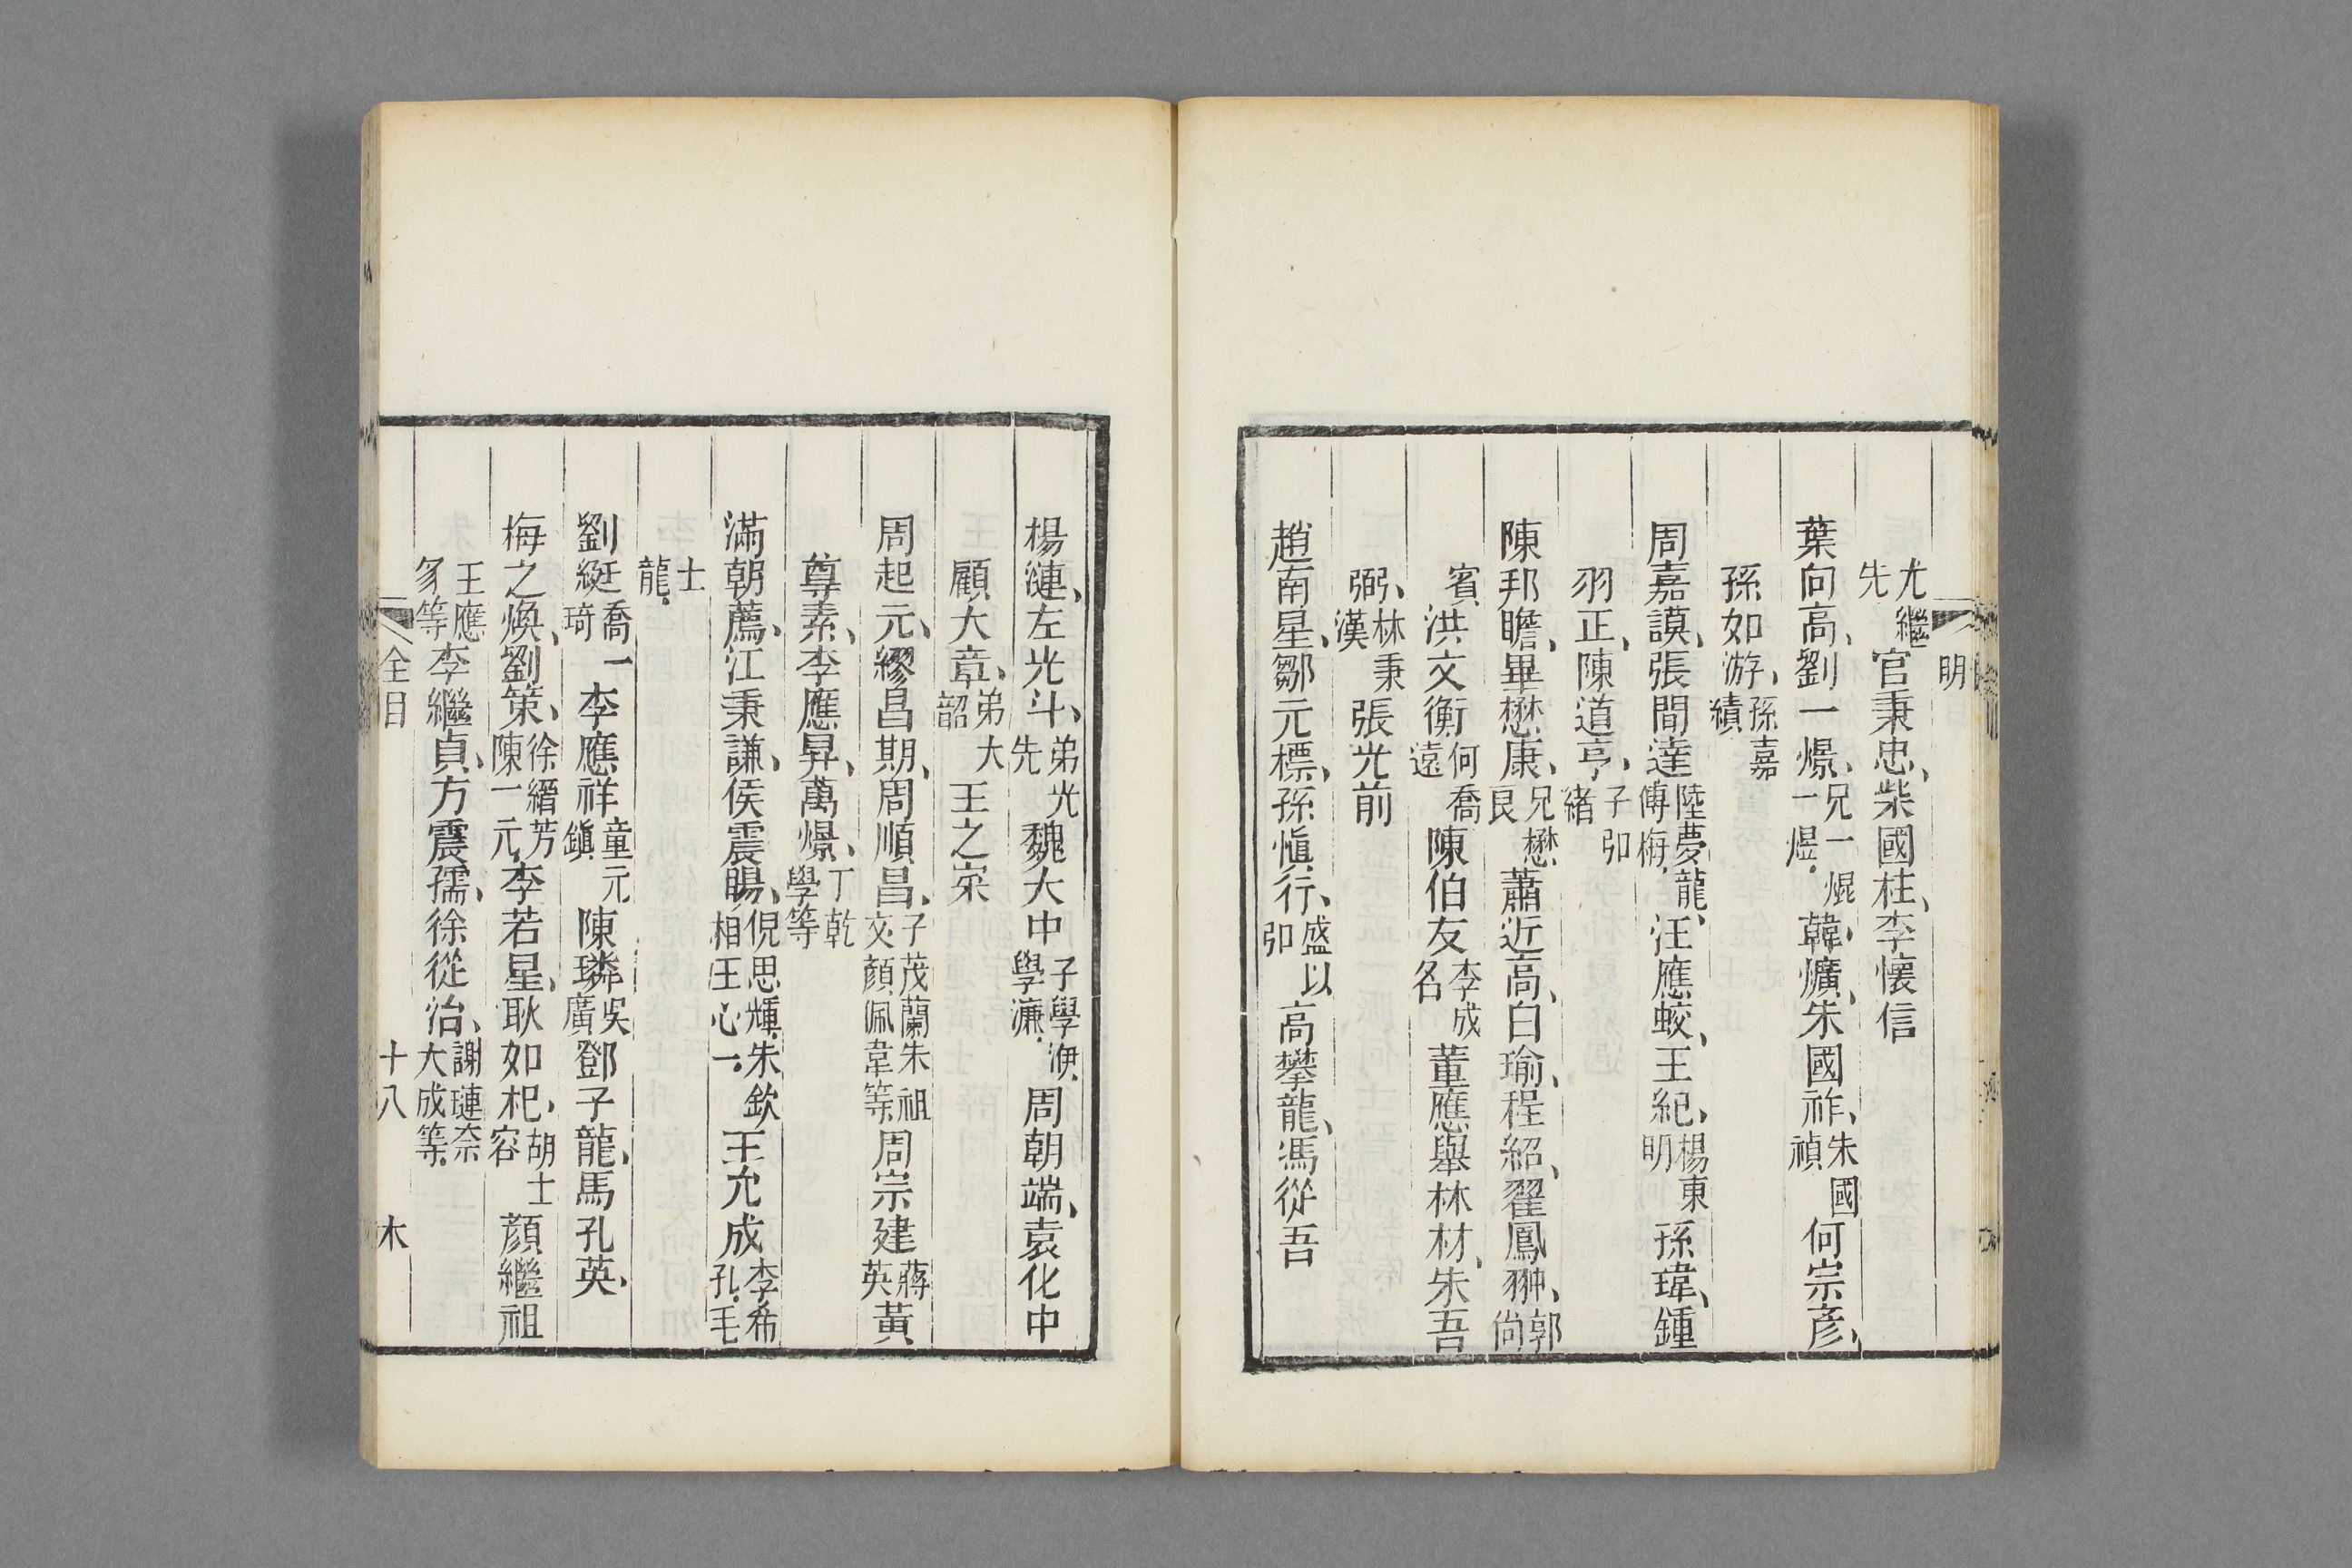 明
尤繼先官秉忠、柴國柱、李懷信
葉向高、劉一燝、兄一焜、一煜、韓爌、朱國祚、朱國禎何宗彥、
孫如游、孫嘉績
周嘉謨、張問達陸夢龍、傅梅、汪應蛟、王紀、楊東明孫瑋、鍾
羽正、陳道亨、子弘緒
陳邦瞻、畢懋康、兄懋良蕭近高、白瑜、程紹、翟鳳翀、郭尚
賓、洪文衡何喬遠陳伯友李成名董應舉林材、朱吾
弼、林秉漢張光前
趙南星、鄒元標、孫愼行、盛以弘高攀龍、馮從吾
楊漣、左光斗、弟光先魏大中子學洢、學濂、周朝端、袁化中
顧大章、弟大韶王之寀
周起元、繆昌期、周順昌、子茂蘭朱祖文、顏佩韋等、周宗建蔣英黃
尊素、李應昇、萬燝、丁乾學等
滿朝薦、江秉謙、侯震暘、倪思輝、朱欽相、王心一、王允成李希孔、毛
士龍、
劉綎喬一琦李應祥童元鎭陳璘吳廣鄧子龍、馬孔英、
梅之煥、劉策、徐縉芳陳一元、李若星、耿如杞、胡士容顏繼祖
王應豸等李繼貞、方震孺、徐從治、謝璉余大成等、
全目 十八 木